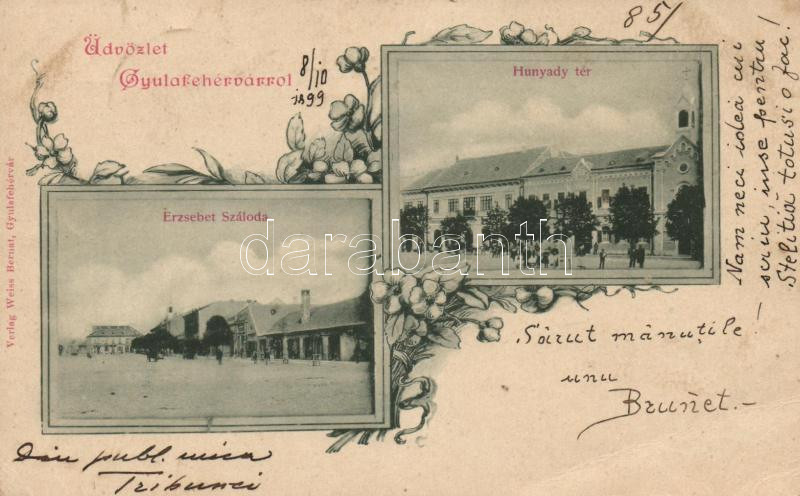 Üdvözlet
Gyulafehérvárról
8/10
1899
85/
Hunyady tér
Erzsebet Száloda
Verlag Weiss Bernat, Gyulafehérvár
darabanth
Nam neci idea mi
scriu, inse pentru
totusi o fac!
Sárut mânuțile!
unu
Bruñet.-
Din publ. mica
Tribunei